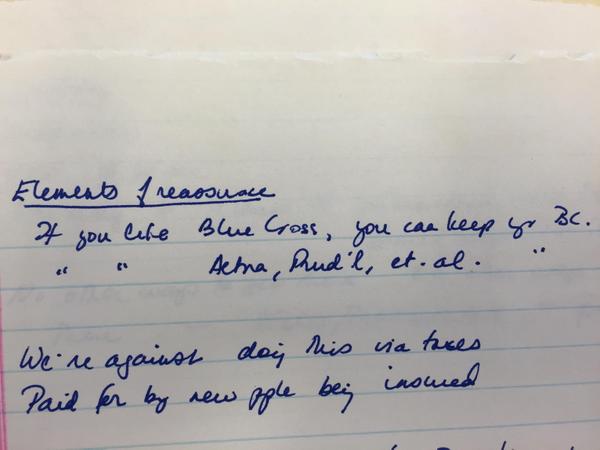 Elements of reassurance
If you like Blue Cross, you can keep yr BC.
" " Aetna, Prud'l, et. al. "
We're against doing this via taxes
Paid for by new pple being insured